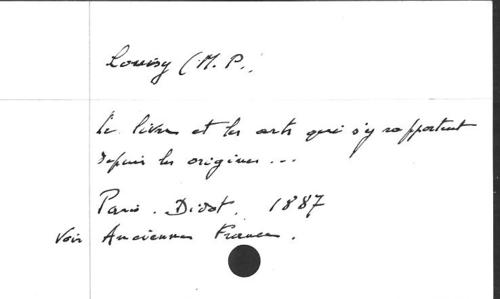 Louisy (M. P.)
Le livre et les arts qui s'y rapportent
depuis les origines ...
Paris. Didot, 1887
Voir Ancienne France.